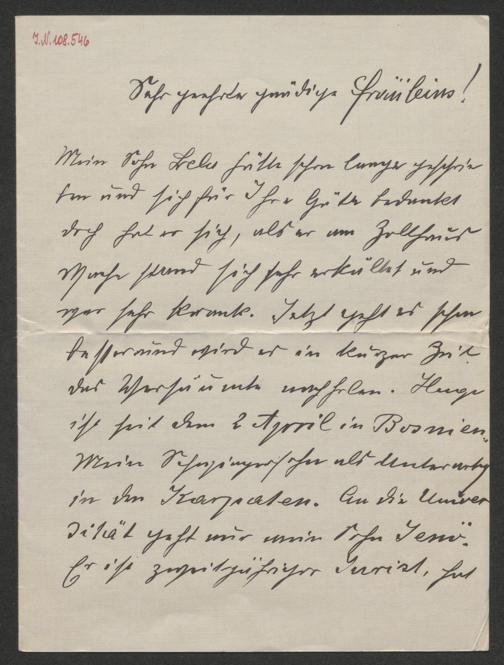 I.N. 108.546
Sehr geehrte gnädige Fräuleins!
Mein Sohn Bela hätte schon langer geschrie
ben und sich für Ihre Güte bedankt
doch hat er sich, als er am Zollhaus
Wache stand sich sehr erkältet und
war sehr krank. Jetzt geht es schon
besser und wird er in kurzer Zeit
das Versäumte nachholen. Hugo
ist seit dem 2 April in Bosnien.
Mein Schwiegersohn als Unterarzt
in den Karpaten. An die Univer
sität geht nur mein Sohn Jenö.
Er ist zweitjähriger Jurist, hat